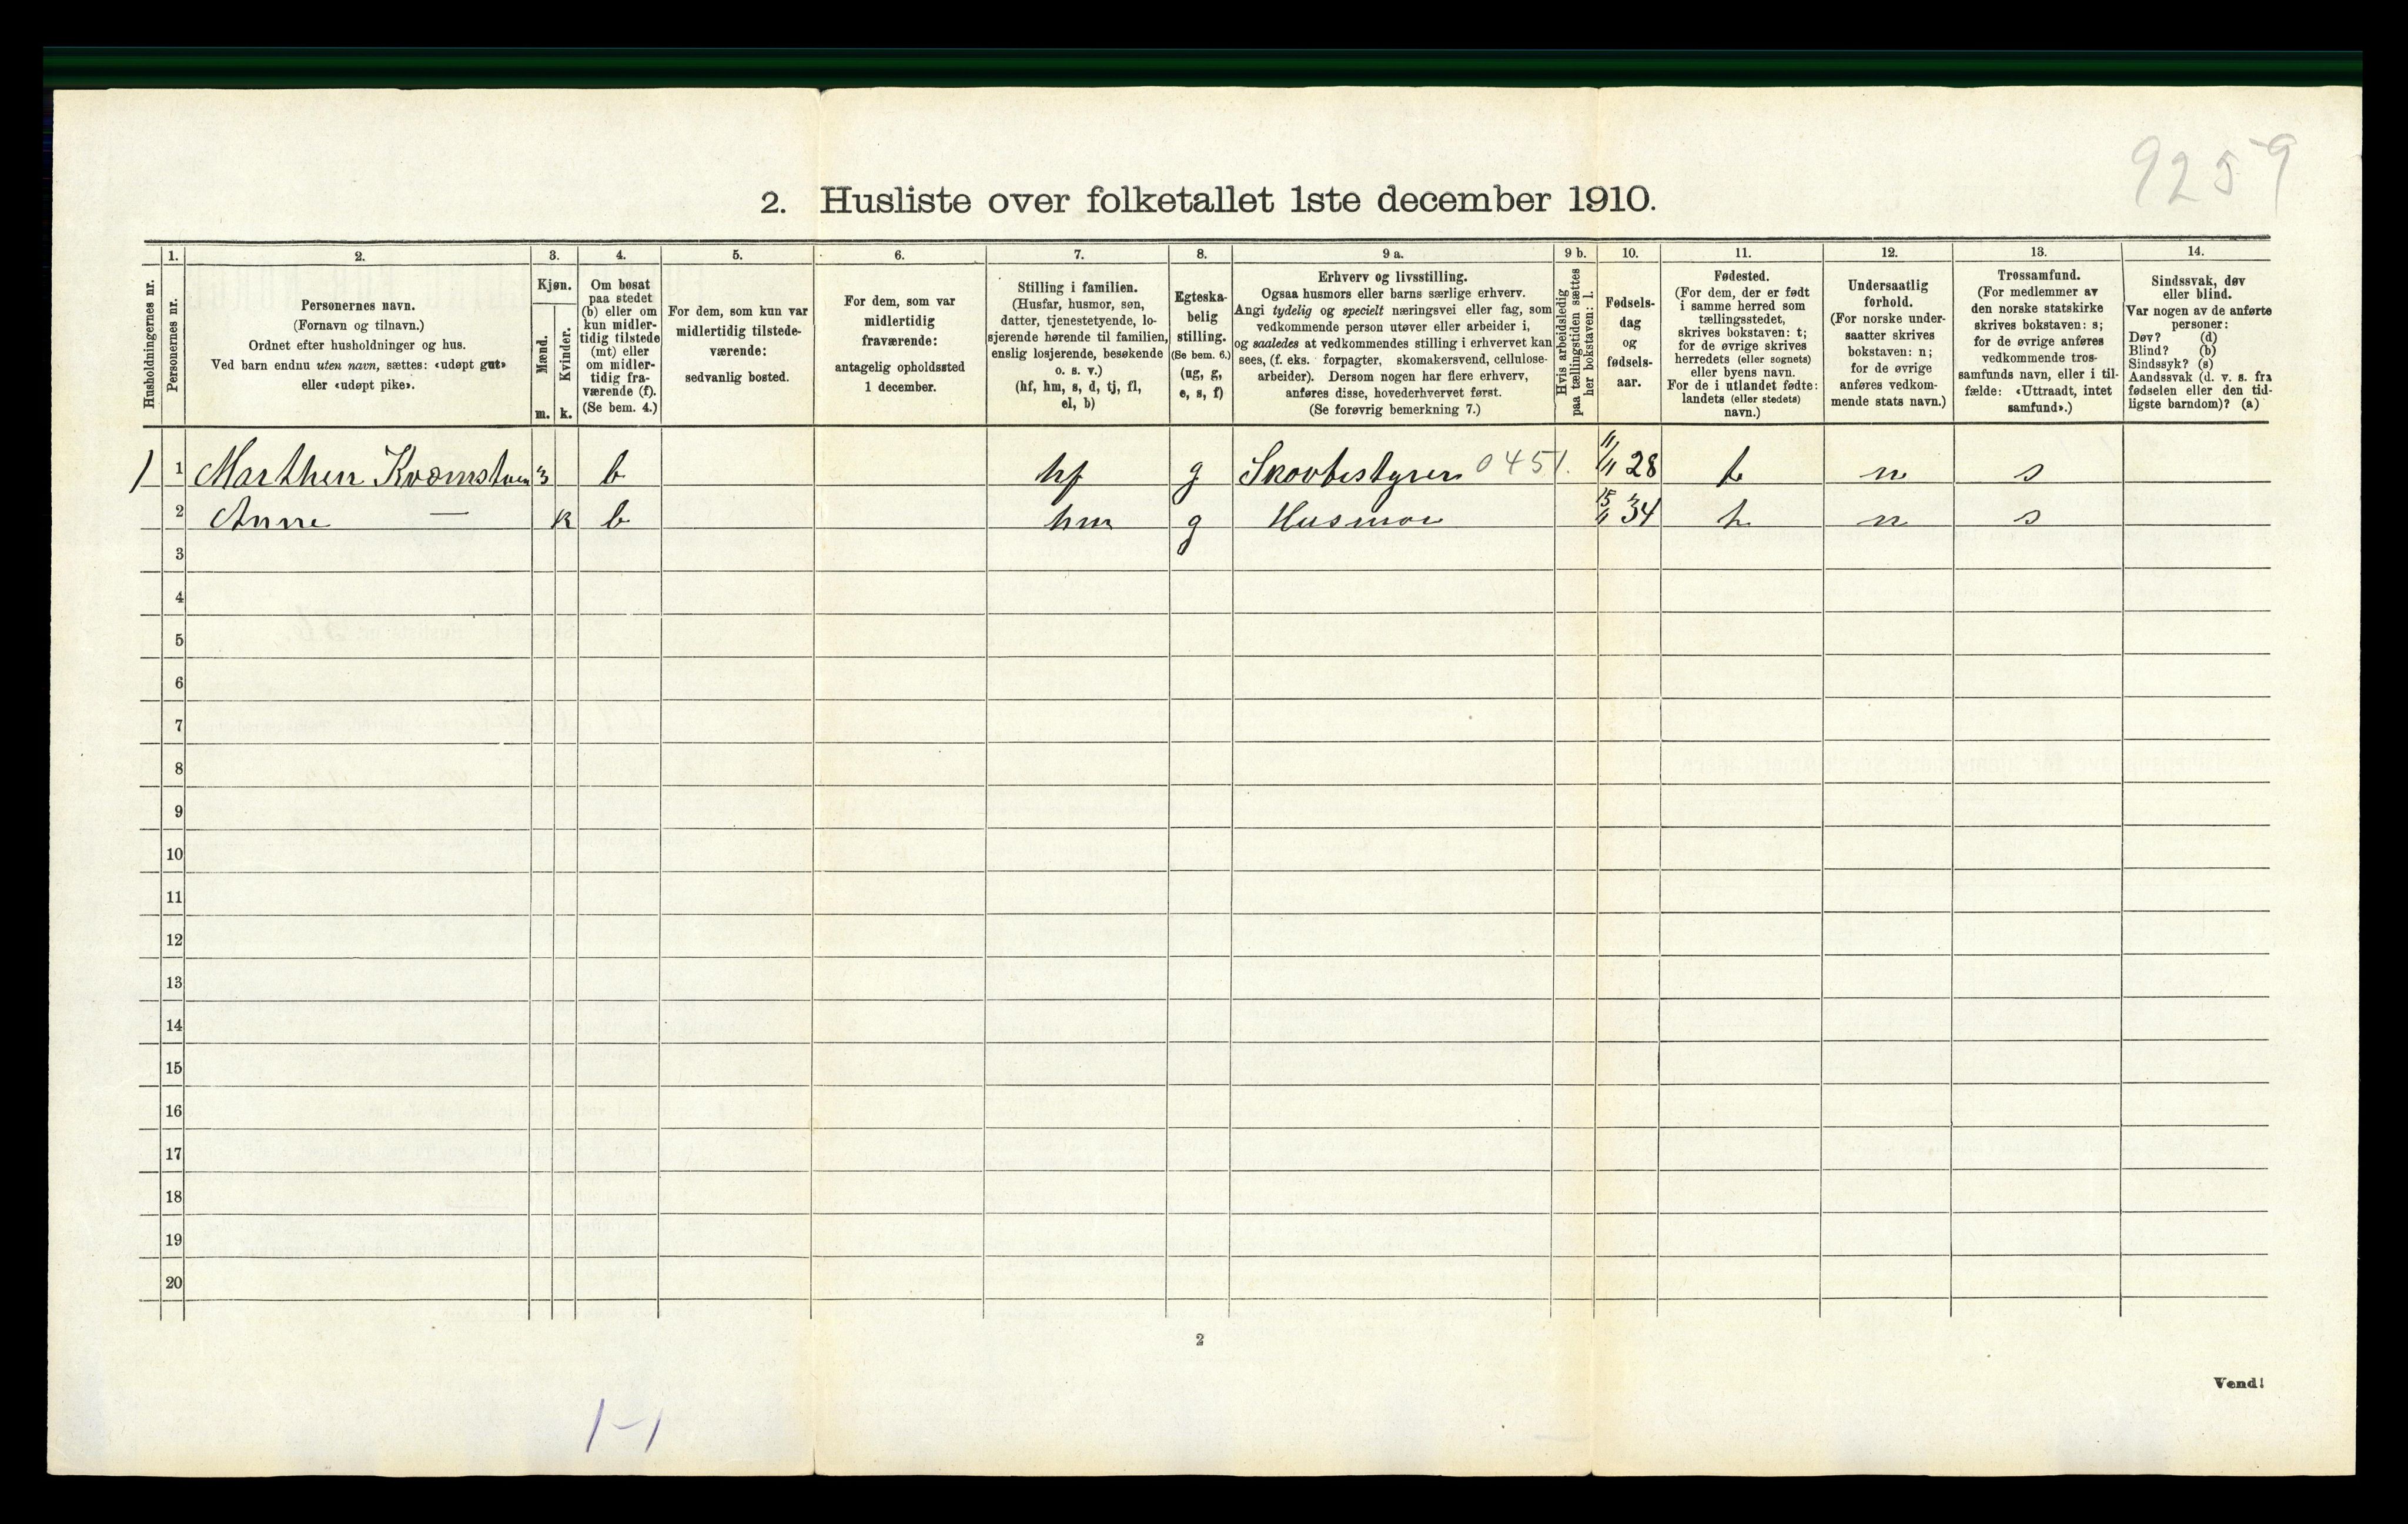 9259
2. Husliste over folketallet 1ste december 1910.
Husholdningernes nr.
1.
Personernes nr.
2.
Personernes navn.
(Fornavn og tilnavn.)
Ordnet efter husholdninger og hus.
Ved barn endnu uten navn, sættes: «udøpt gut»
eller «udøpt pike».
3.
Kjøn.
Mænd.
m.
Kvinder.
k.
4.
Om bosat
paa stedet
(b) eller om
kun midler-
tidig tilstede
(mt) eller
om midler-
tidig fra-
værende (f).
(Se bem. 4.)
5.
For dem, som kun var
midlertidig tilstede-
værende:
sedvanlig bosted.
6.
For dem, som var
midlertidig
fraværende:
antagelig opholdssted
1 december.
7.
Stilling i familien.
(Husfar, husmor, søn,
datter, tjenestetyende, lo-
sjerende hørende til familien,
enslig losjerende, besøkende
o. s. v.)
(hf, hm, s, d, tj, fl,
el, b)
8.
Egteska-
belig
stilling.
(Se bem. 6.)
(ug, g,
e, s, f)
9 a.
Erhverv og livsstilling.
Ogsaa husmors eller barns særlige erhverv.
Angi tydelig og specielt næringsvei eller fag, som
vedkommende person utøver eller arbeider i,
og saaledes at vedkommendes stilling i erhvervet kan
sees, (f. eks. forpagter, skomakersvend, cellulose-
arbeider). Dersom nogen har flere erhverv,
anføres disse, hovederhvervet først.
(Se forøvrig bemerkning 7.)
9 b.
Hvis arbeidsledig
paa tællingstiden sættes
her bokstaven: l.
10.
Fødsels-
dag
og
fødsels-
aar.
11.
Fødested.
(For dem, der er født
i samme herred som
tællingsstedet,
skrives bokstaven: t;
for de øvrige skrives
herredets (eller sognets)
eller byens navn.
For de i utlandet fødte:
landets (eller stedets)
navn.)
12.
Undersaatlig
forhold.
(For norske under-
saatter skrives
bokstaven: n;
for de øvrige
anføres vedkom-
mende stats navn.)
13.
Trossamfund.
(For medlemmer av
den norske statskirke
skrives bokstaven: s;
for de øvrige anføres
vedkommende tros-
samfunds navn, eller i til-
fælde: «Uttraadt, intet
samfund».)
14.
Sindssvak, døv
eller blind.
Var nogen av de anførte
personer:
Døv? (d)
Blind? (b)
Sindssyk? (s)
Aandssvak (d. v. s. fra
fødselen eller den tid-
ligste barndom)? (a)
1 Marthen b hf g Skovbestyrer 0451. 11/11 28 t n s
2 Anne — k b hm g Husmor 34 t n s
3
4
5
6
7
8
9
10
11
12
13
14
15
16
17
18
19
20
2
Vend!
1-1